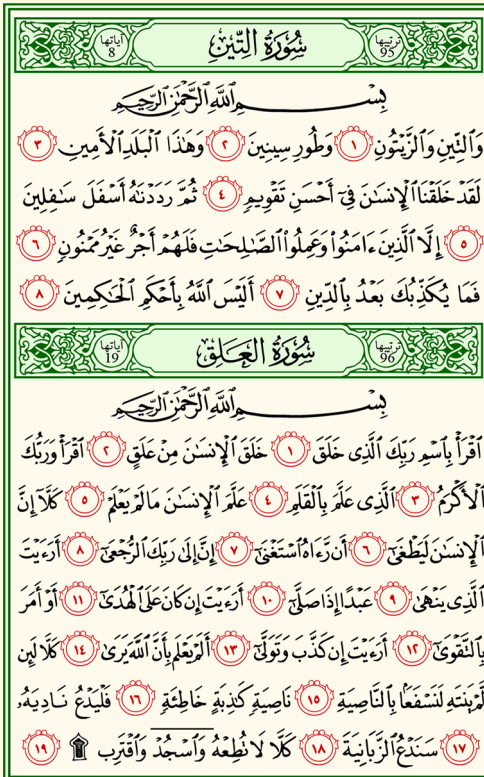 ترتيبها 95 سُورَةُ التِّينِ آياتها 8
بِسْمِ ٱللَّهِ ٱلرَّحْمَٰنِ ٱلرَّحِيمِ
وَٱلتِّينِ وَٱلزَّيْتُونِ ١ وَطُورِ سِينِينَ ٢ وَهَٰذَا ٱلْبَلَدِ ٱلْأَمِينِ ٣
لَقَدْ خَلَقْنَا ٱلْإِنسَٰنَ فِىٓ أَحْسَنِ تَقْوِيمٍ ٤ ثُمَّ رَدَدْنَٰهُ أَسْفَلَ سَٰفِلِينَ
٥ إِلَّا ٱلَّذِينَ ءَامَنُوا۟ وَعَمِلُوا۟ ٱلصَّٰلِحَٰتِ فَلَهُمْ أَجْرٌ غَيْرُ مَمْنُونٍ ٦
فَمَا يُكَذِّبُكَ بَعْدُ بِٱلدِّينِ ٧ أَلَيْسَ ٱللَّهُ بِأَحْكَمِ ٱلْحَٰكِمِينَ ٨
ترتيبها 96 سُورَةُ العَلَقِ آياتها 19
بِسْمِ ٱللَّهِ ٱلرَّحْمَٰنِ ٱلرَّحِيمِ
ٱقْرَأْ بِٱسْمِ رَبِّكَ ٱلَّذِى خَلَقَ ١ خَلَقَ ٱلْإِنسَٰنَ مِنْ عَلَقٍ ٢ ٱقْرَأْ وَرَبُّكَ
ٱلْأَكْرَمُ ٣ ٱلَّذِى عَلَّمَ بِٱلْقَلَمِ ٤ عَلَّمَ ٱلْإِنسَٰنَ مَا لَمْ يَعْلَمْ ٥ كَلَّآ إِنَّ
ٱلْإِنسَٰنَ لَيَطْغَىٰٓ ٦ أَن رَّءَاهُ ٱسْتَغْنَىٰٓ ٧ إِنَّ إِلَىٰ رَبِّكَ ٱلرُّجْعَىٰٓ ٨ أَرَءَيْتَ
ٱلَّذِى يَنْهَىٰ ٩ عَبْدًا إِذَا صَلَّىٰٓ ١٠ أَرَءَيْتَ إِن كَانَ عَلَى ٱلْهُدَىٰٓ ١١ أَوْ أَمَرَ
بِٱلتَّقْوَىٰٓ ١٢ أَرَءَيْتَ إِن كَذَّبَ وَتَوَلَّىٰٓ ١٣ أَلَمْ يَعْلَم بِأَنَّ ٱللَّهَ يَرَىٰ ١٤ كَلَّا لَئِن
لَّمْ يَنتَهِ لَنَسْفَعًۢا بِٱلنَّاصِيَةِ ١٥ نَاصِيَةٍ كَٰذِبَةٍ خَاطِئَةٍ ١٦ فَلْيَدْعُ نَادِيَهُۥ
١٧ سَنَدْعُ ٱلزَّبَانِيَةَ ١٨ كَلَّا لَا تُطِعْهُ وَٱسْجُدْ وَٱقْتَرِب ۩ ١٩